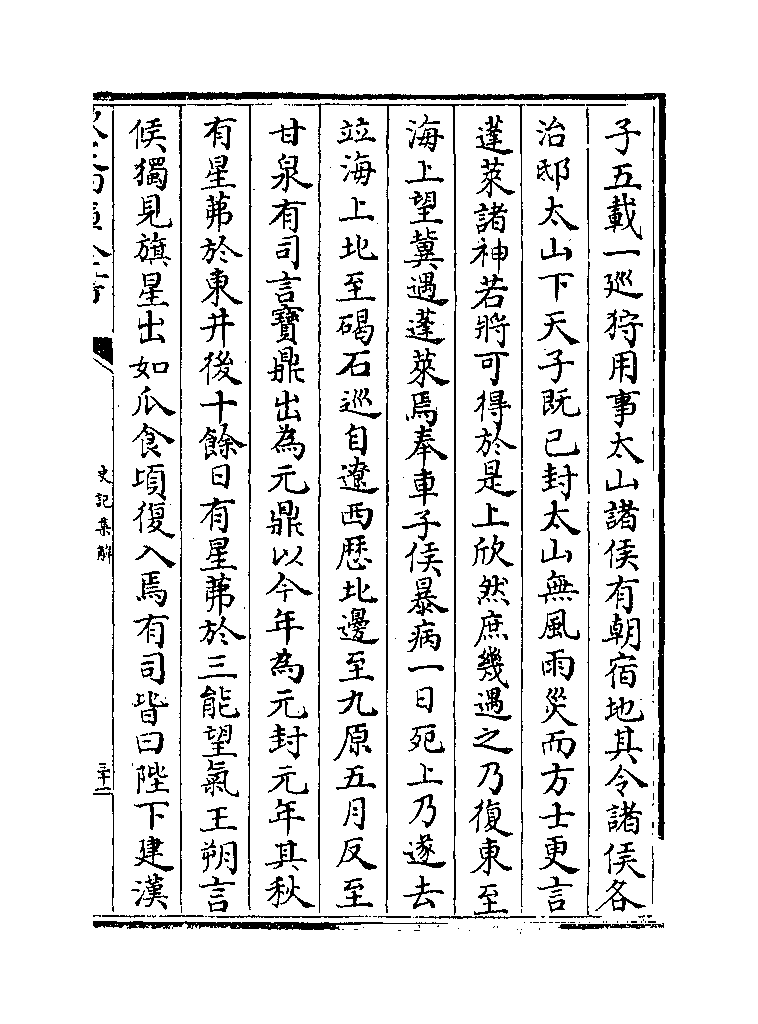 子五載一廵狩用事太山諸侯有朝宿地其令諸侯各
治邸太山下天子既已封太山無風雨災而方士更言
蓬萊諸神若將可得於是上欣然庶幾遇之乃復東至
海上望冀遇蓬萊焉奉車子侯暴病一日死上乃遂去
竝海上北至碣石巡自遼西歴北邊至九原五月反至
甘泉有司言寶鼎出為元鼎以今年為元封元年其秋
有星茀於東井後十餘日有星茀於三能望氣王朔言
候獨見旗星出如瓜食頃復入焉有司皆曰陛下建漢
史記集解
三十一